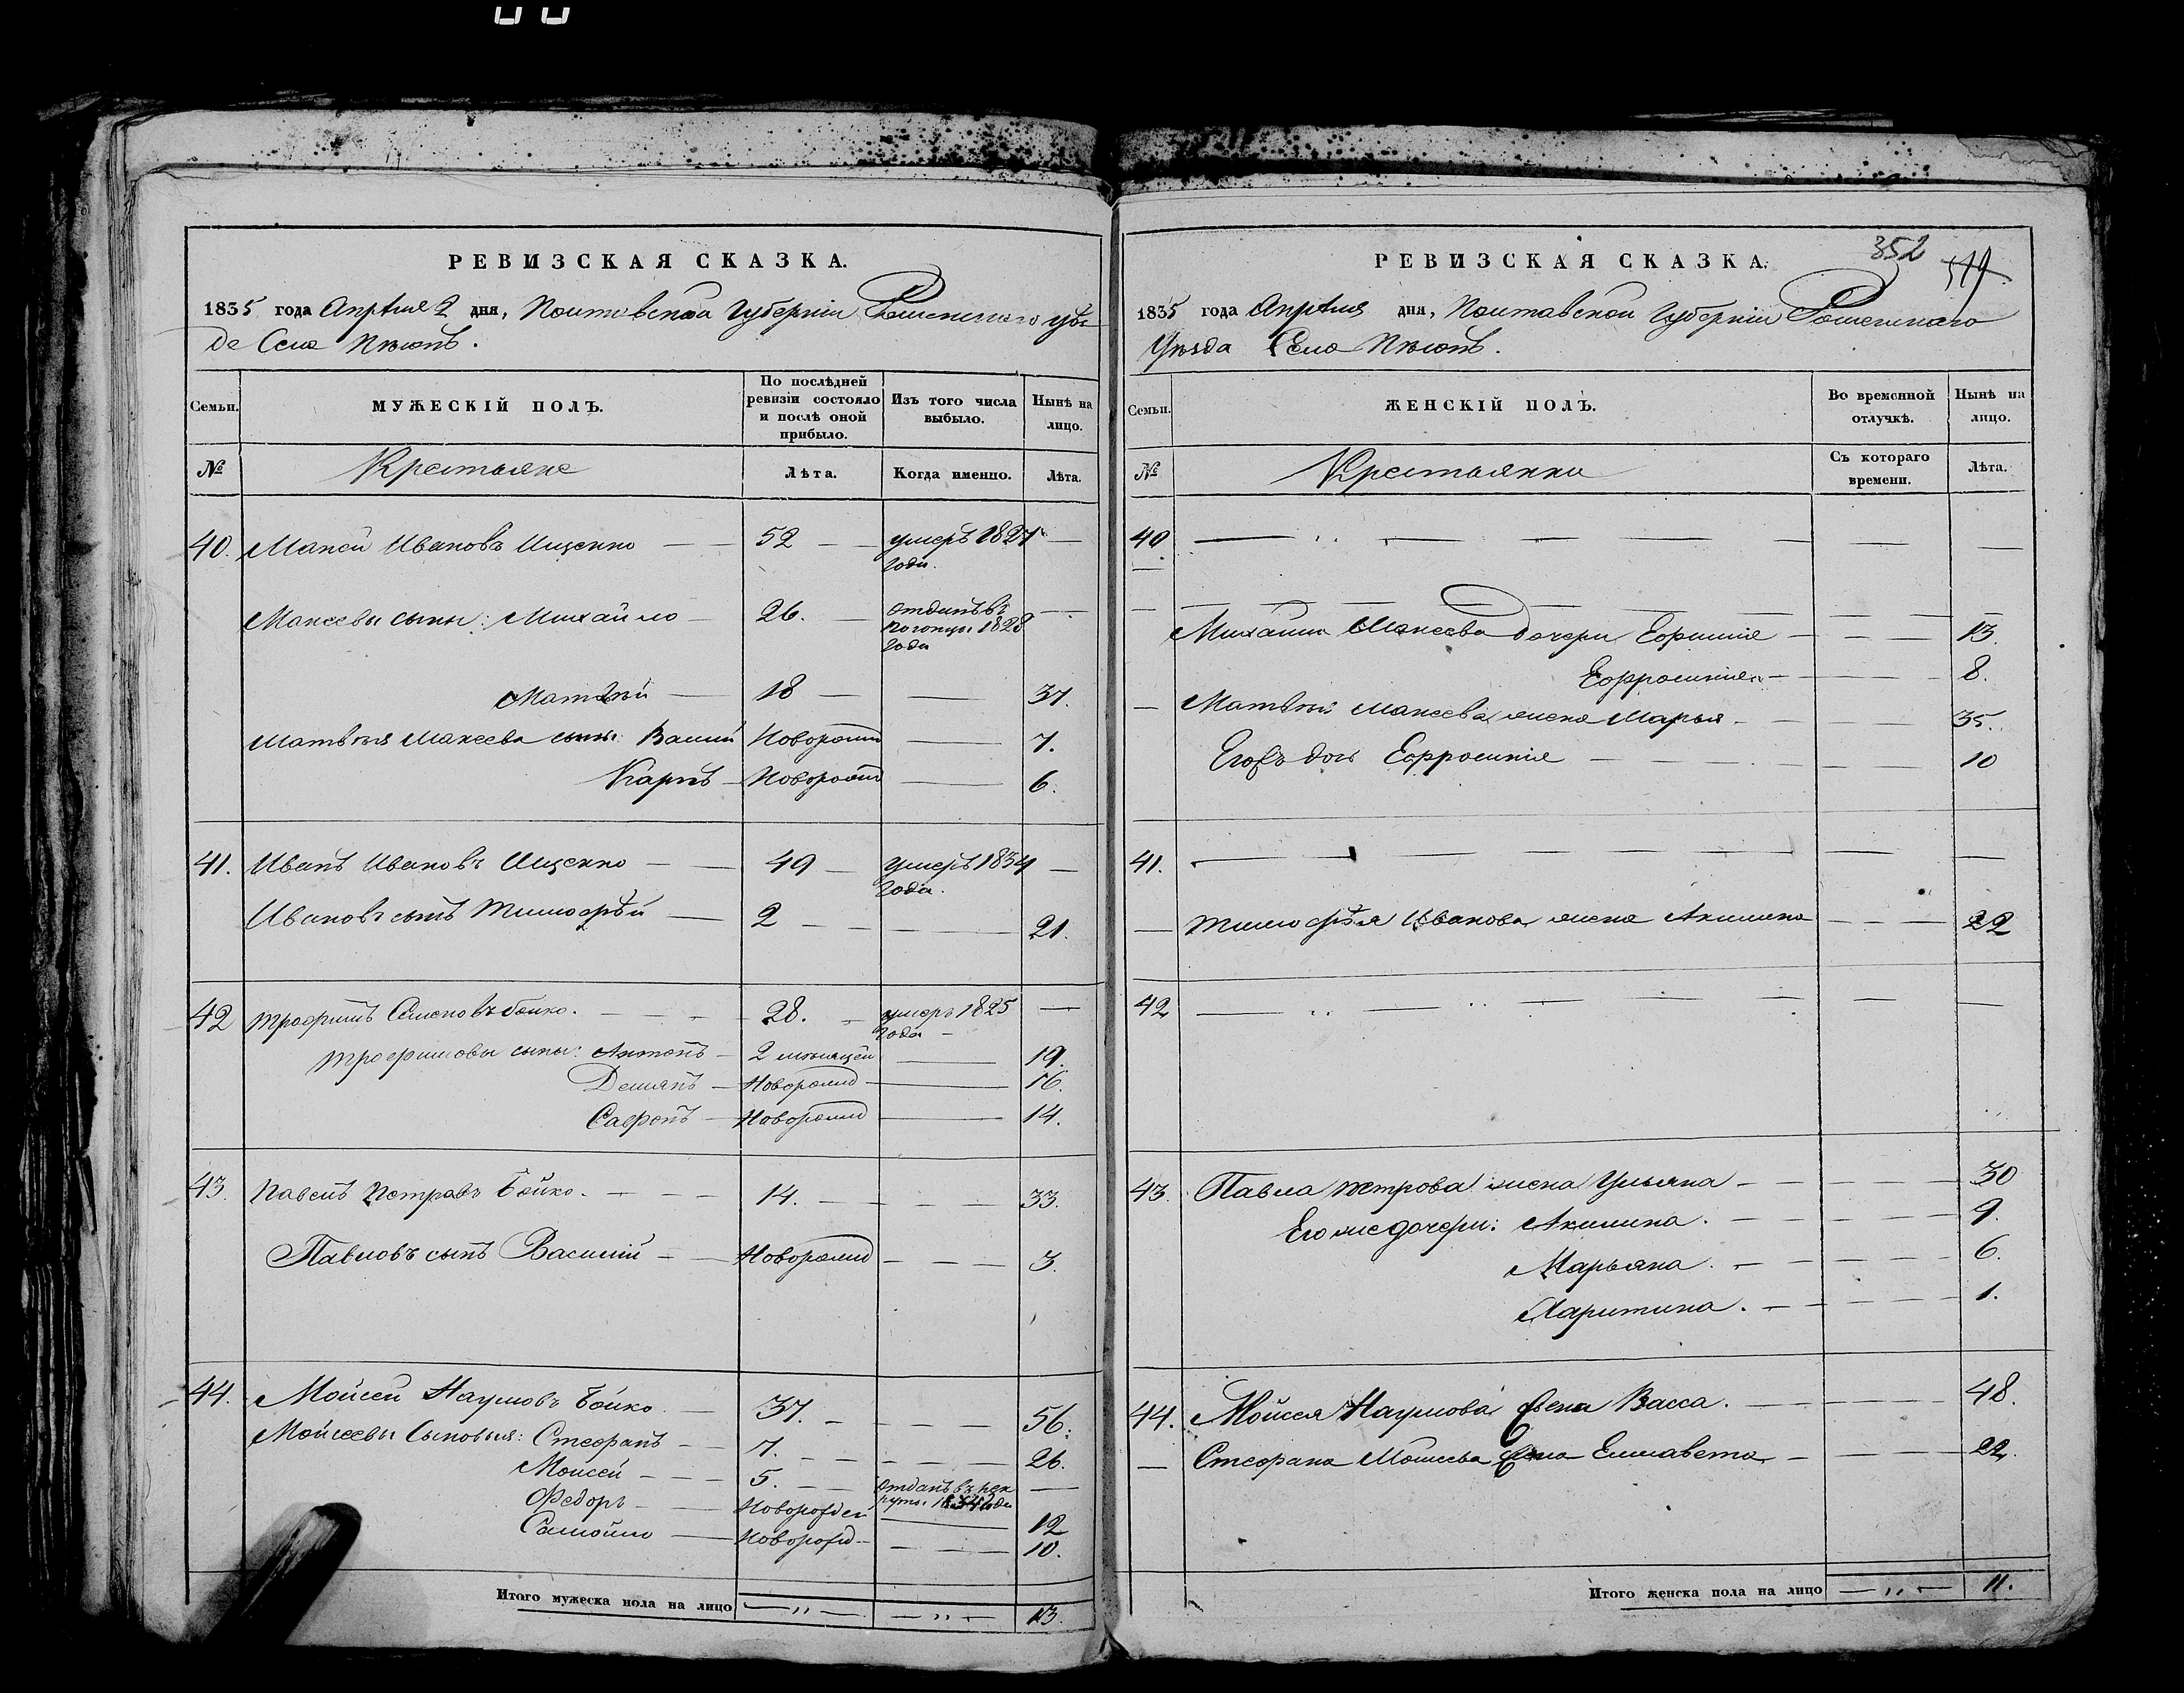 РЕВИЗСКАЯ СКАЗКА.
1835 года Апрѣля 2 дня, Полтавской Губерніи
де Села
Семьи.
МУЖЕСКІЙ ПОЛЪ.
По послѣдней ревизіи состояло и послѣ оной прибыло.
Изъ того числа выбыло.
Нынѣ на лицо.
№
Крестьяне
Лѣта.
Когда именно.
Лѣта.
40. Макей Ивановъ Ищенко 52 умеръ 1827
года.
Макеевы сыны: Михайло 26. отданъ въ
1828
года
Матвѣй 18 37.
Матвѣя Макеева сыны: Новорожд 7.
Карпъ Новорожд 6.
41. Иванъ Ивановъ Ищенко 49 умеръ 1834
года.
Ивановъ сынъ Тимофѣй 2 21.
42 Трофимъ Семеновъ Бойко. 28. умеръ 1825
года
Трофимовы сыны: Антонъ 2 мѣсяцей 19.
Демянъ Новорожд 16.
Сафонъ Новорожд 14.
43. Павелъ Петровъ Бойко. 14. 33.
Павловъ сынъ Василій Новорожд 3.
44. Мойсей Наумовъ Бойко 37. 56.
Мойсеевы Сыновья: Стефанъ 7. 26.
Моисей 5. Отданъ въ рек
руты 1834 года
Федоръ Новорожден 12
Самойло Новорожд 10.
Итого мужеска пола на лицо 13.
352
РЕВИЗСКАЯ СКАЗКА.
1835 года Апрѣля дня, Полтавской Губерніи
Уѣзда Села
Семьи.
ЖЕНСКІЙ ПОЛЪ.
Во временной отлучкѣ.
Нынѣ на лицо.
№
Крестьянки
Съ котораго времени.
Лѣта.
40
Михайла Макеева дочери 13.
Ефросинія 8.
Матвѣя Макеева жена Марья 35.
Его жъ дочь Ефросинія 10
41.
Тимофѣя Иванова жена Акилина 22
42
43. Павла Петрова жена Ульяна 30
Его же дочери: Акилина. 9.
Марьяна. 6.
Харитина. 1.
44. Мойсея Наумова жена Васса. 48.
Стефана Мойсеева жена Елисавета 22.
Итого женска пола на лицо 11.